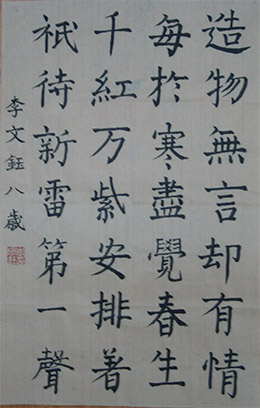 造物無言却有情
每於寒盡覺春生
千紅万紫安排著
祇待新雷第一聲
李文鈺八歲